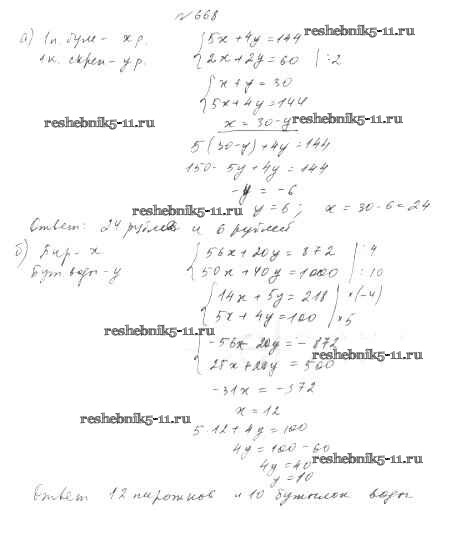 № 668
а) 1 к. булк - х р.
1 к. скреп - у р.
5x + 4y = 144
2x + 2y = 60 | :2
x + y = 30
5x + 4y = 144
x = 30 - y
5(30 - y) + 4y = 144
150 - 5y + 4y = 144
-y = -6
y = 6; x = 30 - 6 = 24
Ответ: 24 рубля и 6 рублей
б) Пир - х
Бут. воды - у
56x + 20y = 872 | :4
50x + 40y = 1000 | :10
14x + 5y = 218 | ×(-4)
5x + 4y = 100 | ×5
-56x - 20y = -872
25x + 20y = 500
-31x = -372
x = 12
5·12 + 4y = 100
4y = 100 - 60
4y = 40
y = 10
Ответ 12 пирожков и 10 бутылок воды
reshebnik5-11.ru
reshebnik5-11.ru
reshebnik5-11.ru
reshebnik5-11.ru
reshebnik5-11.ru
reshebnik5-11.ru
reshebnik5-11.ru
reshebnik5-11.ru
reshebnik5-11.ru